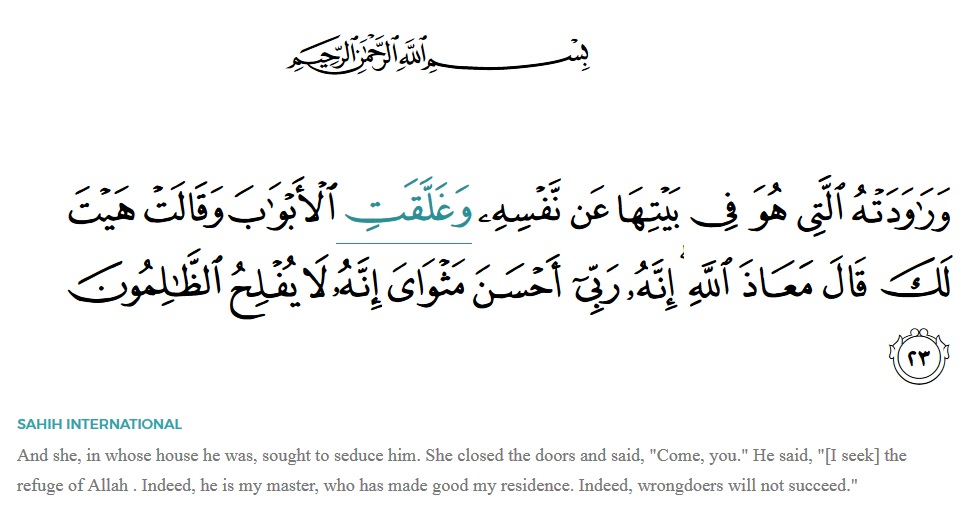 بِسْمِ ٱللَّهِ ٱلرَّحْمَٰنِ ٱلرَّحِيمِ
وَرَٰوَدَتْهُ ٱلَّتِى هُوَ فِى بَيْتِهَا عَن نَّفْسِهِۦ وَغَلَّقَتِ ٱلْأَبْوَٰبَ وَقَالَتْ هَيْتَ
لَكَ قَالَ مَعَاذَ ٱللَّهِ ۖ إِنَّهُۥ رَبِّىٓ أَحْسَنَ مَثْوَاىَ إِنَّهُۥ لَا يُفْلِحُ ٱلظَّٰلِمُونَ
٢٣
SAHIH INTERNATIONAL
And she, in whose house he was, sought to seduce him. She closed the doors and said, "Come, you." He said, "[I seek] the
refuge of Allah . Indeed, he is my master, who has made good my residence. Indeed, wrongdoers will not succeed."